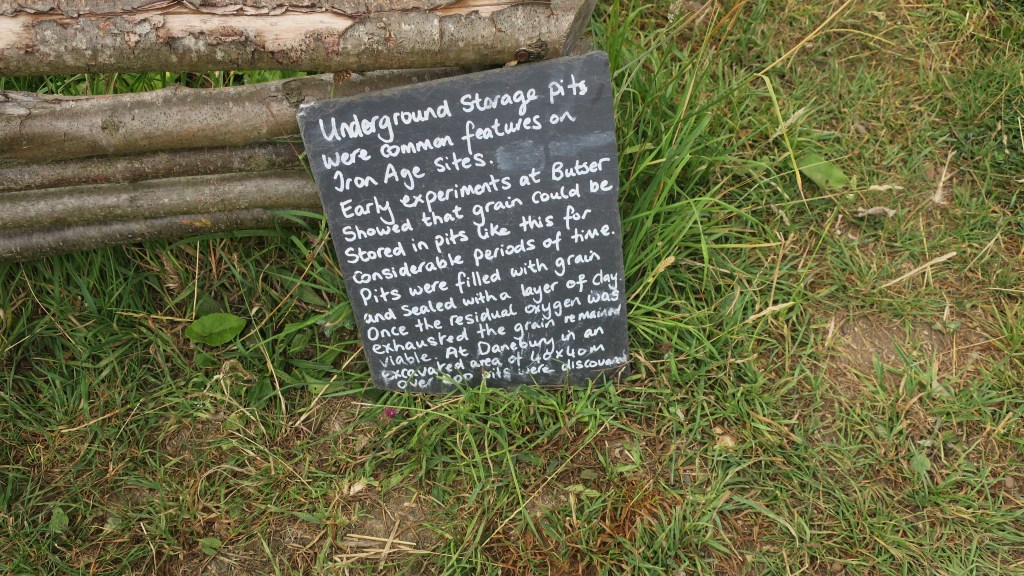 Underground Storage pits
were common features on
Iron Age sites.
Early experiments at Butser
Showed that grain could be
Stored in pits like this for
Considerable periods of time.
Pits were filled with grain
and Sealed with a layer of clay
Once the residual oxygen was
exhausted the grain remained
viable. At Danebury in an
excavated area of 40x40m
over pits were discovered